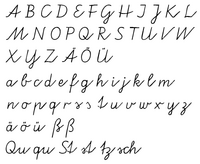 A B C D E F G H I J K L
M N O P Q R S T U V W
X Y Z Ä Ö Ü
a b c d e f g h i j k l m
n o p q r s t u v w x y z
ä ö ü ß ß
Qu qu St st tz sch st